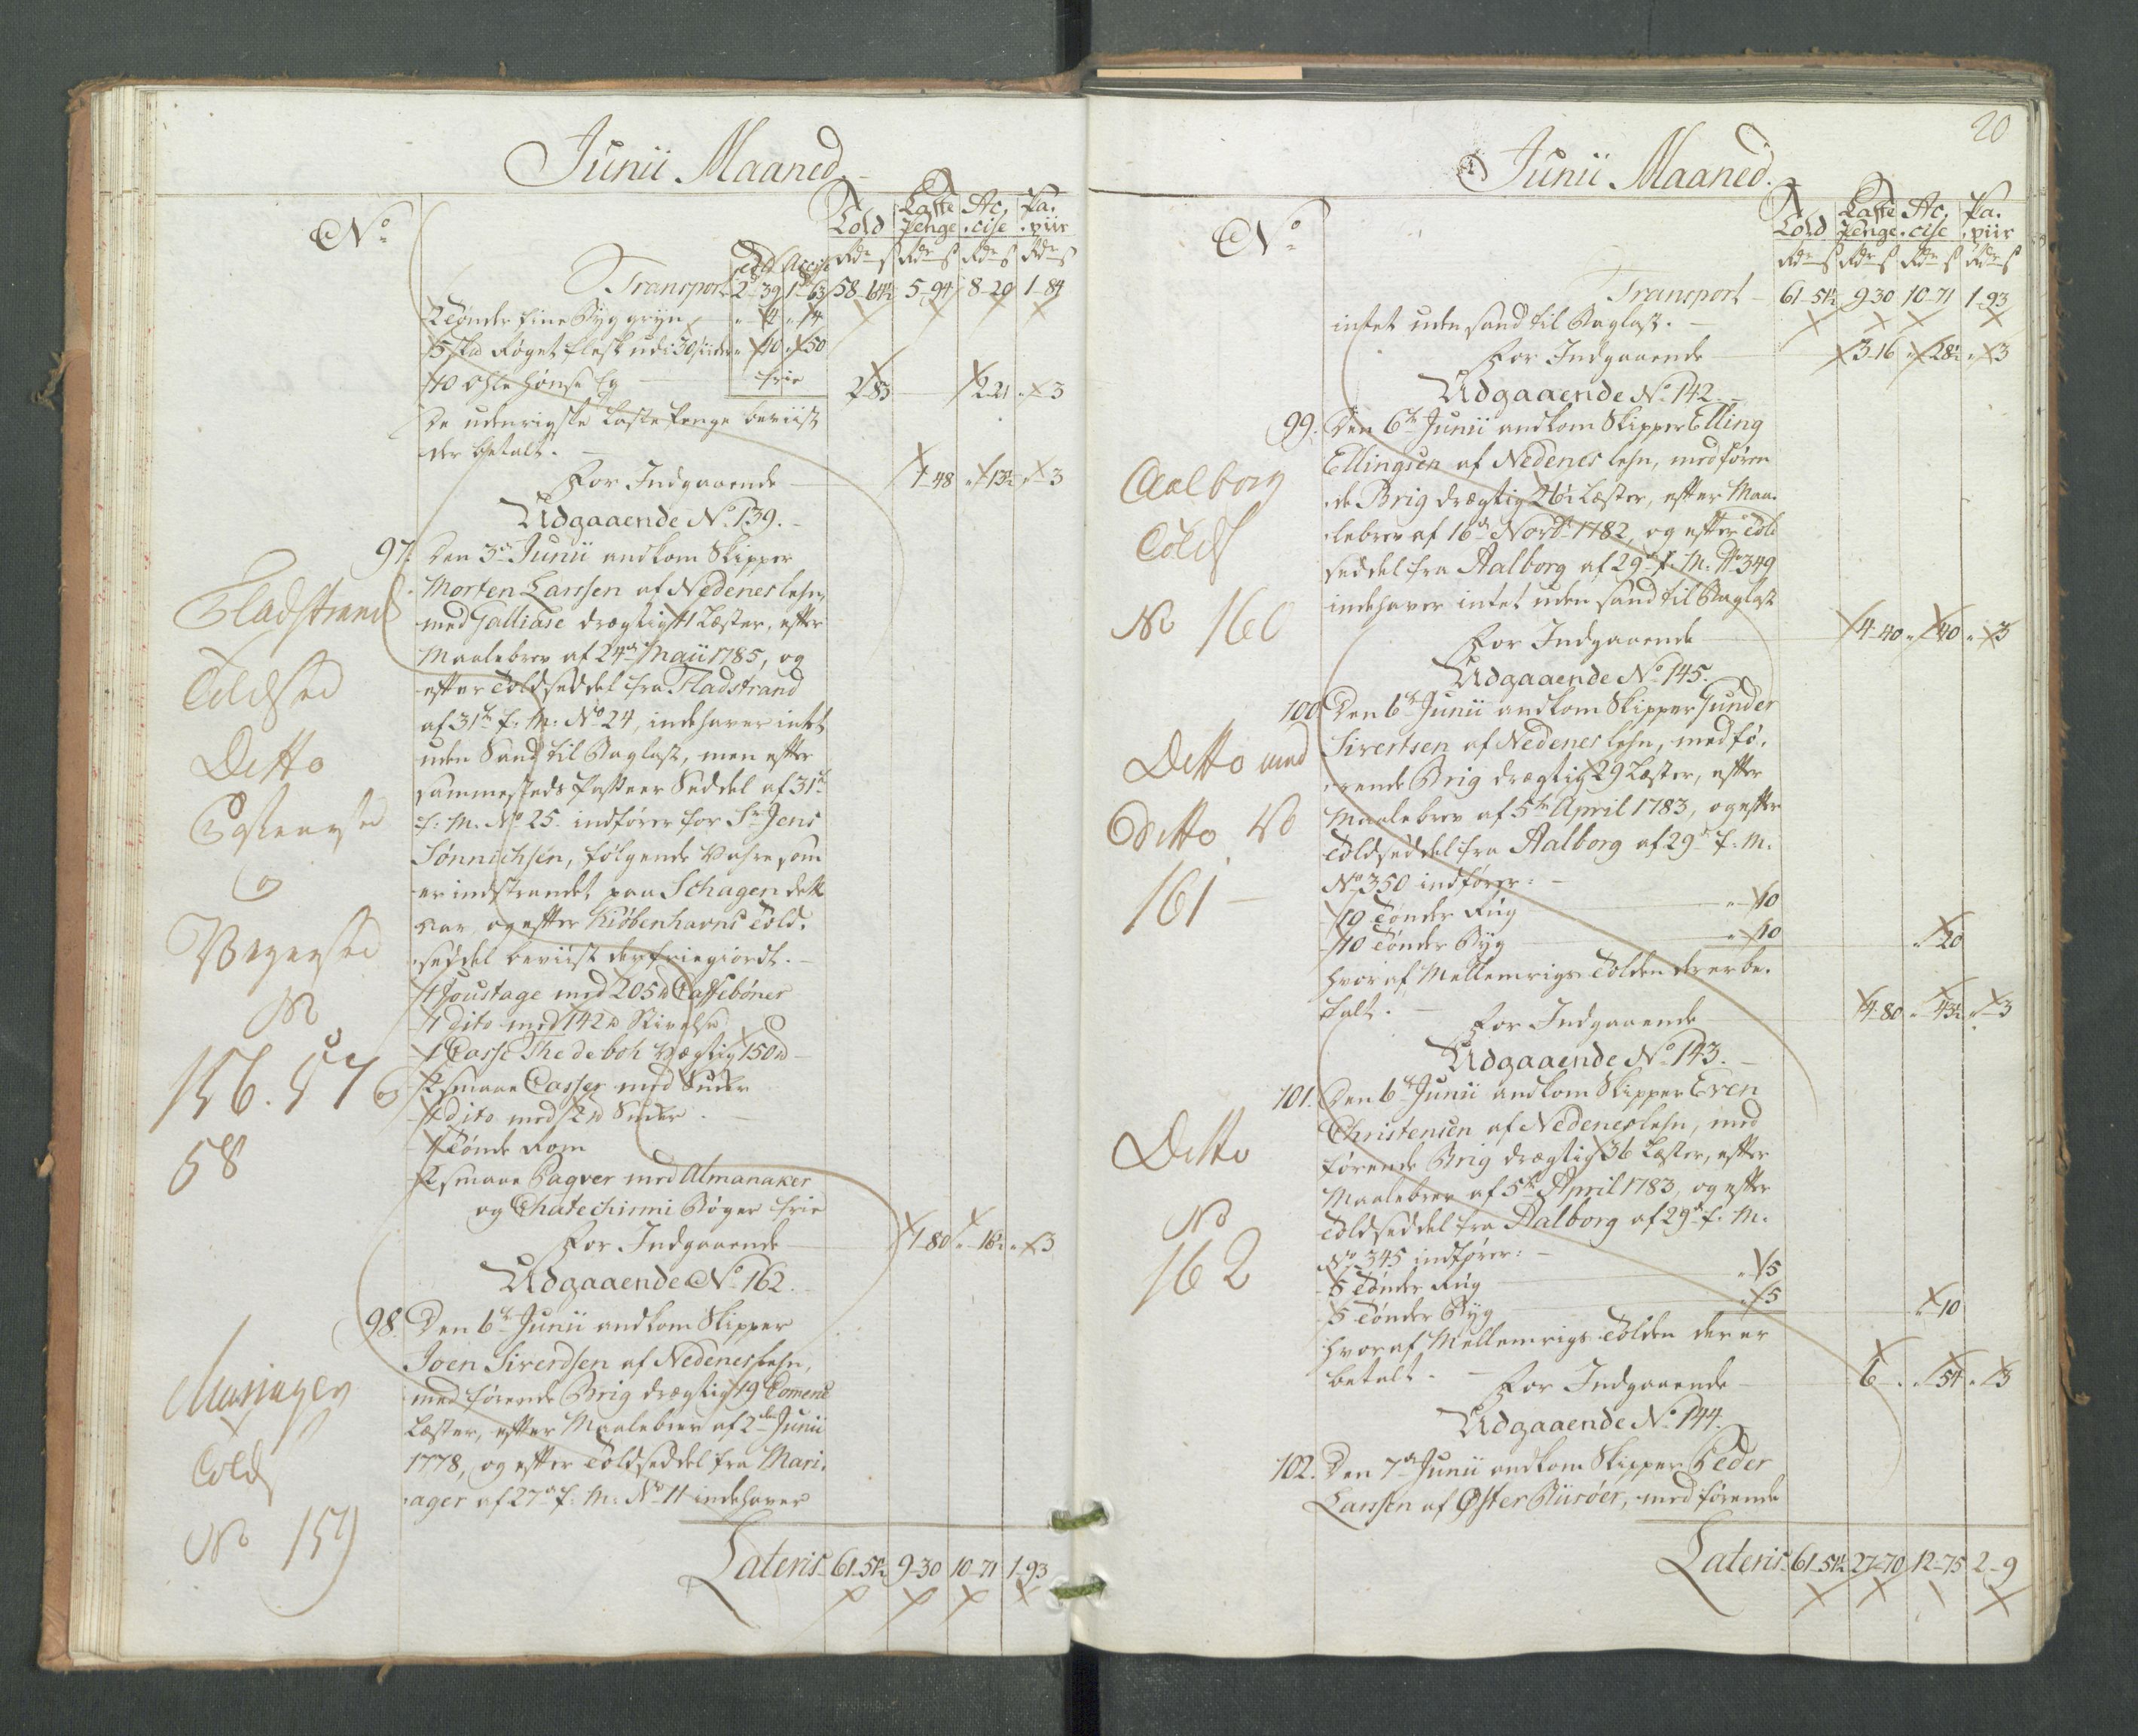 Junii Maaned
No
Told Laste Penge Accise Papiir
Rdr ß Rdr ß Rdr ß Rdr ß
Told Accise
Transport 2-39 1-63 58-64½ 5-94 8-20 1-84
2 Tønder fine Byggryn " 4 " 14
5 Skd Røget flesk udi 30 sider " 10 " 50
10 Ohle Hønse Eg frie 2-83 2-21 " 3
De udenrigske Lastepenge beviist
der betalt.
For Indgaaende 1-48 " 13½ " 3
Udgaaende No 139.
97. Den 3de Junii ankom Skipper
Morten Larssen af Nedenes lehn,
med Galliase drægtig 11 Læster, efter
Maalebrev af 24de Maii 1785, og
efter Toldseddel fra Fladstrand
af 31te f: M: No 24, indehaver intet
uden Sand til Baglast, men efter
sammesteds Passeer Seddel af 31te
f: M. No 25. indfører for Sr Jens
Sønnichsen, følgende Vahre som
er indstrandet paa Schagen dette
Aar, og efter Kiøbenhavns Told-
seddel beviist der friegiordt.
1 Foustage med 205 lb Caffebøner
1 dito med 142 lb Rivelse
1 Casse The de boh vægtig 150 lb
2 smaae Casser med Suder
1 dito med 12 lb Suder
1 Tønde Rom
2 smaae Paqver med Almanaker
og Chatechismi Bøger frie
For Indgaaende 1-80 " 16½ " 3
Udgaaende No 162.
98. Den 6te Junii ankom Skipper
Joen Siverdsen af Nedenes lehn,
medførende Brig drægtig 19 Comerce
Læster, efter Maalebrev af 2den Junii
1778, og efter Toldseddel fra Mari-
ager af 27de f: M: No 11 indehaver
Lateris 61-51½ 9-30 10-71 1-93
Fladstrand
Toldsed
Ditto
Passeersed
og
No
156. 57 og
58
Mariager
Tolds
No 159
20
Junii Maaned.
No
Told Laste Penge Accise Papiir
Rdr ß Rdr ß Rdr ß Rdr ß
Transport 61-51½ 9-30 10-71 1-93
intet uden sand til Baglast.
For Indgaaende 3-16 " 28½ " 3
Udgaaende No 142.
99. Den 6te Junii ankom Skipper Elling
Ellingsen af Nedenes lehn, medføren-
de Brig drægtig 26½ Læster, efter Maa-
lebrev af 16de Novbr 1782, og efter Told
seddel fra Aalborg af 29de f. M. No 349
indehaver intet uden sand til Baglast
For Indgaaende 4-40 " 40 " 3
Udgaaende No 145.
100. Den 6te Junii ankom Skipper Gunder
Sivertsen af Nedenes lehn, medfø-
rende Brig drægtig 29 Læster, efter
Maalebrev af 5te April 1783, og efter
Toldseddel fra Aalborg af 29de f. M.
No 350 indfører:
10 Tønder Rug " 10
10 Tønder Byg " 10 " 20
hvoraf Mellemrigs Tolden der er be-
talt.
For Indgaaende 4-80 " 43½ " 3
Udgaaende No 143.
101. Den 6te Junii ankom Skipper Even
Christensen af Nedenes lehn, med
førende Brig drægtig 36 Læster, efter
Maalebrev af 5te April 1783, og efter
Toldseddel fra Aalborg af 29de f. M.
No 345 indfører:
5 Tønder Rug " 5
5 Tønder Byg " 5 " 10
hvoraf Mellemrigs Tolden der er
betalt.
For Indgaaende 6 " " 54 " 3
Udgaaende No 144.
102. Den 7de Junii ankom Skipper Peder
Larssen af Øster Riisøer, medførende
Lateris 61-51½ 27-70 12-75 2-9
Aalborg
Tolds
No 160
Ditto
Ditto No
161
Ditto
No
162